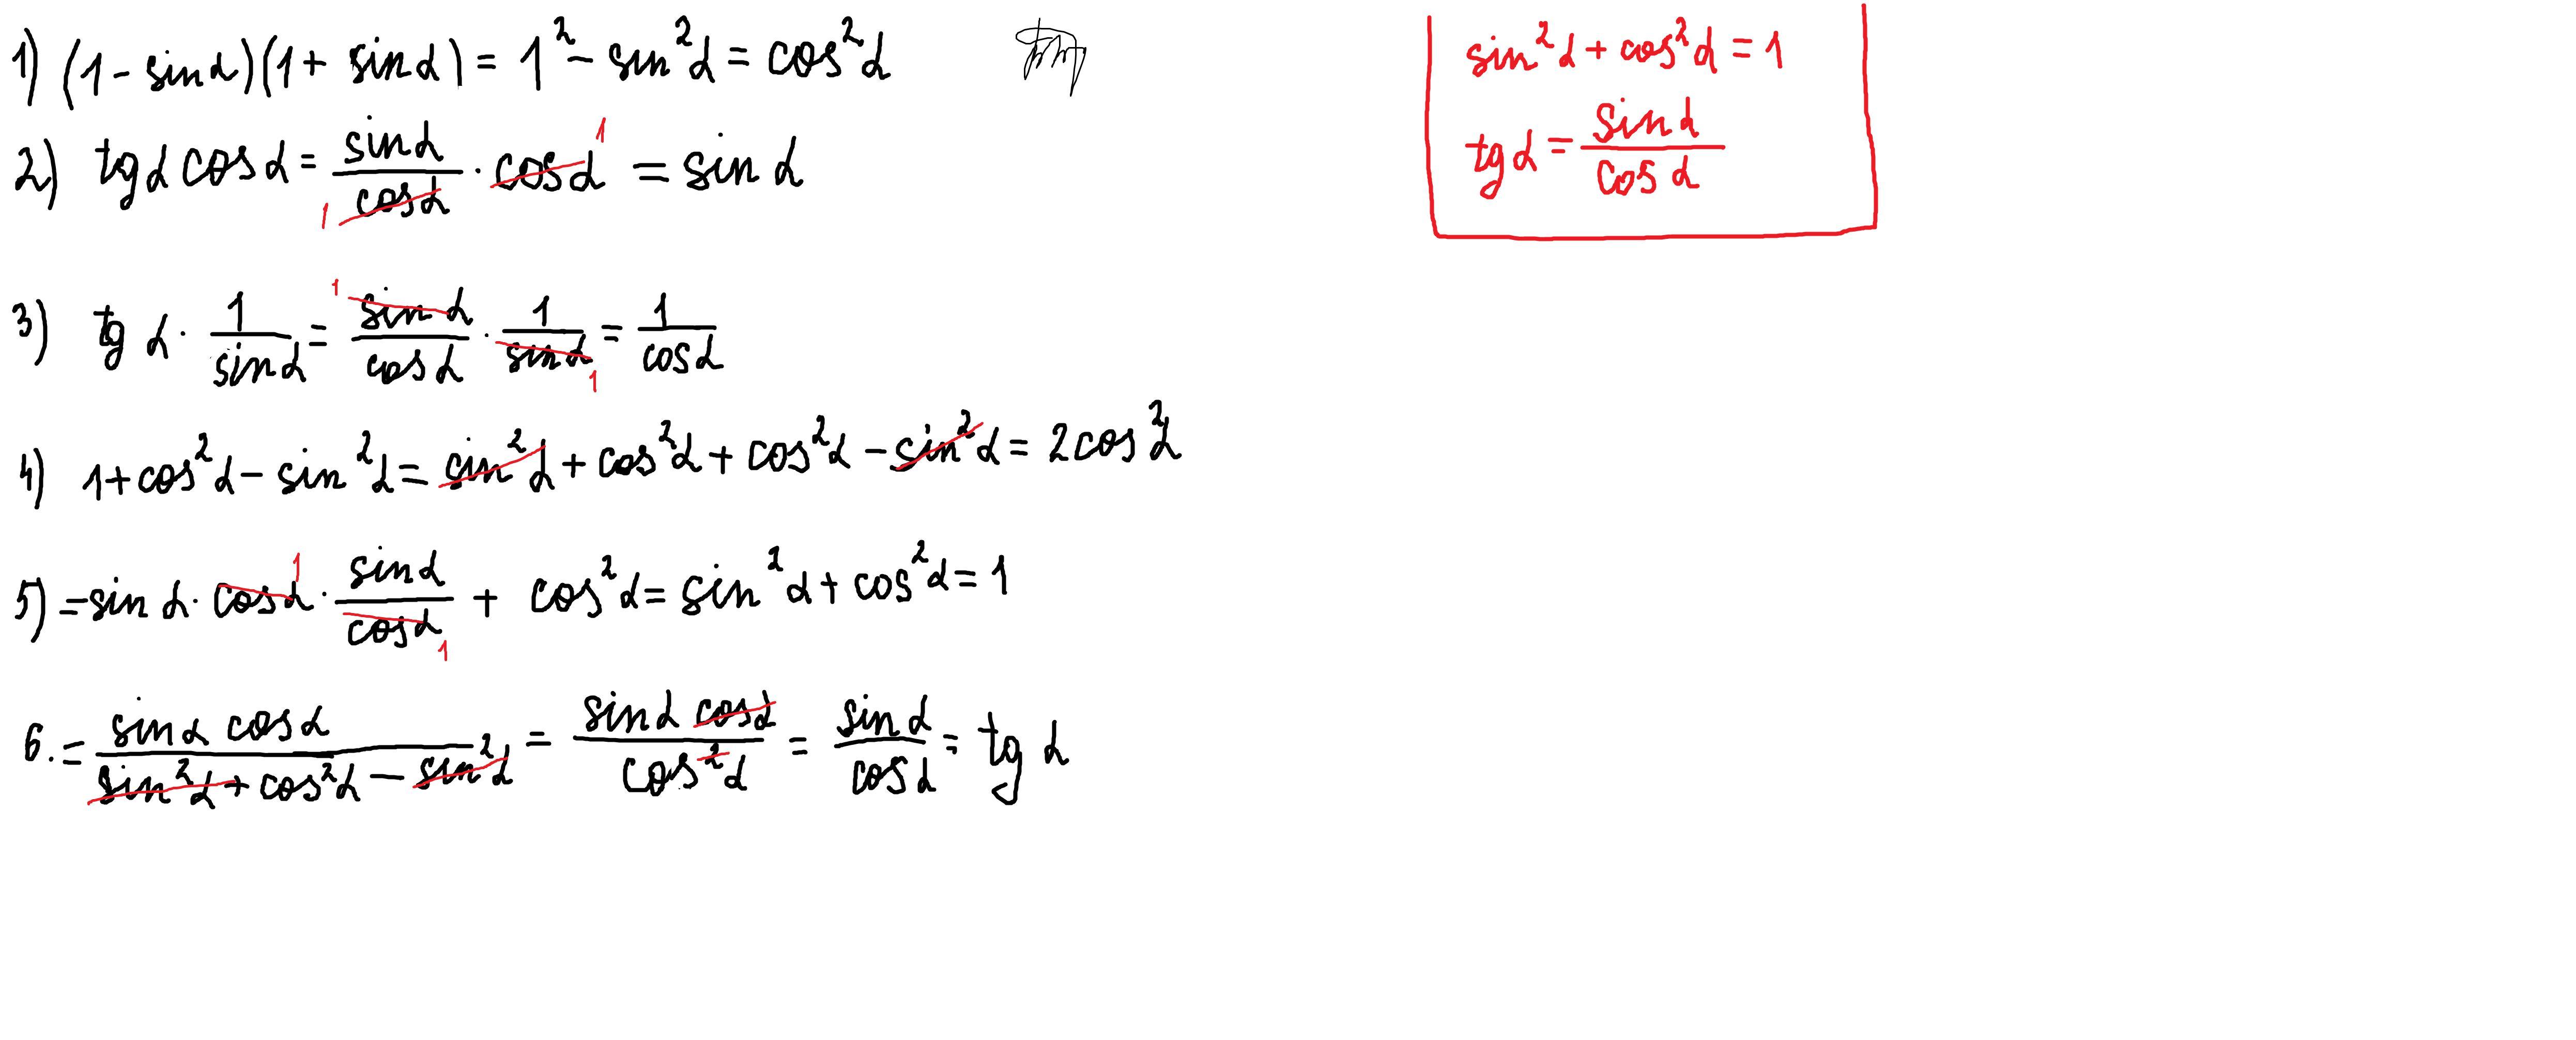 1) (1 - sin α)(1 + sin α) = 1² - sin²α = cos²α
2) tg α cos α = sin α / cos α · cos α = sin α
1 1
3) tg α · 1 / sin α = sin α / cos α · 1 / sin α = 1 / cos α
1 1
4) 1 + cos²α - sin²α = sin²α + cos²α + cos²α - sin²α = 2cos²α
5) = sin α · cos α · sin α / cos α + cos²α = sin²α + cos²α = 1
1 1
6. = sin α cos α / sin²α + cos²α - sin²α = sin α cos α / cos²α = sin α / cos α = tg α
sin²α + cos²α = 1
tg α = sin α / cos α